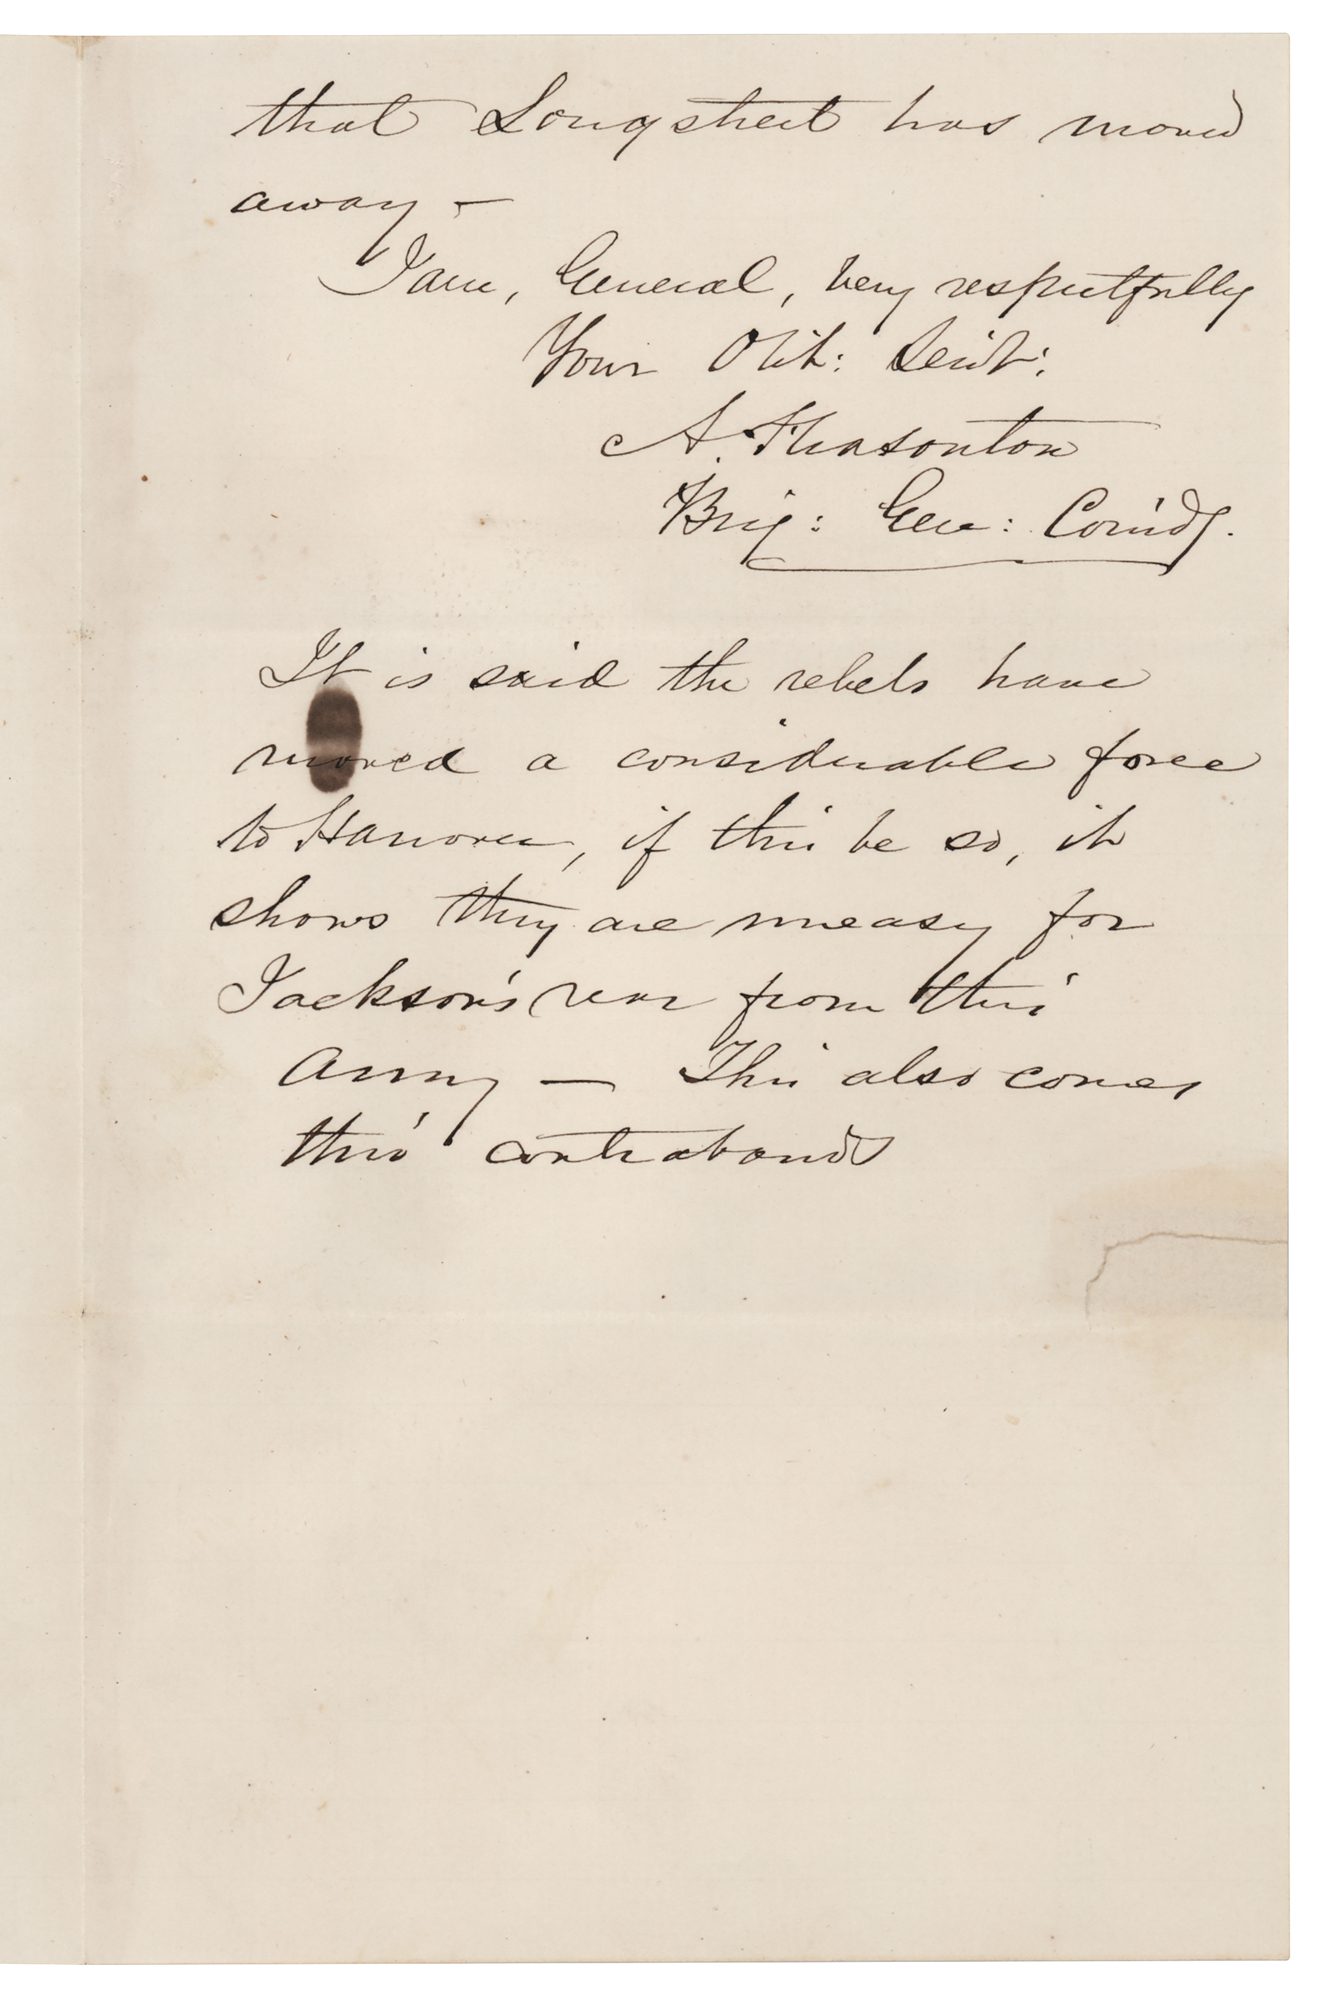 that Longstreet has moved
away –
I am, General, very respectfully
Your Obt: Servt:
A. Pleasonton
Brig: Gen: Comdg.
It is said the rebels have
moved a considerable force
to Hanover, if this be so, it
shows they are uneasy for
Jackson's rear from this
Army — This also comes
thro' contrabands